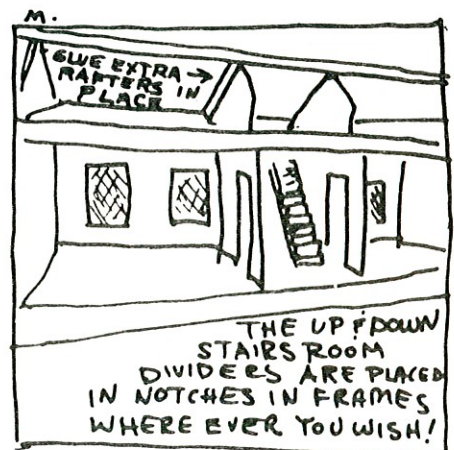 M.
GLUE EXTRA →
RAFTERS IN
PLACE
THE UP & DOWN
STAIRS ROOM
DIVIDERS ARE PLACED
IN NOTCHES IN FRAMES
WHERE EVER YOU WISH!